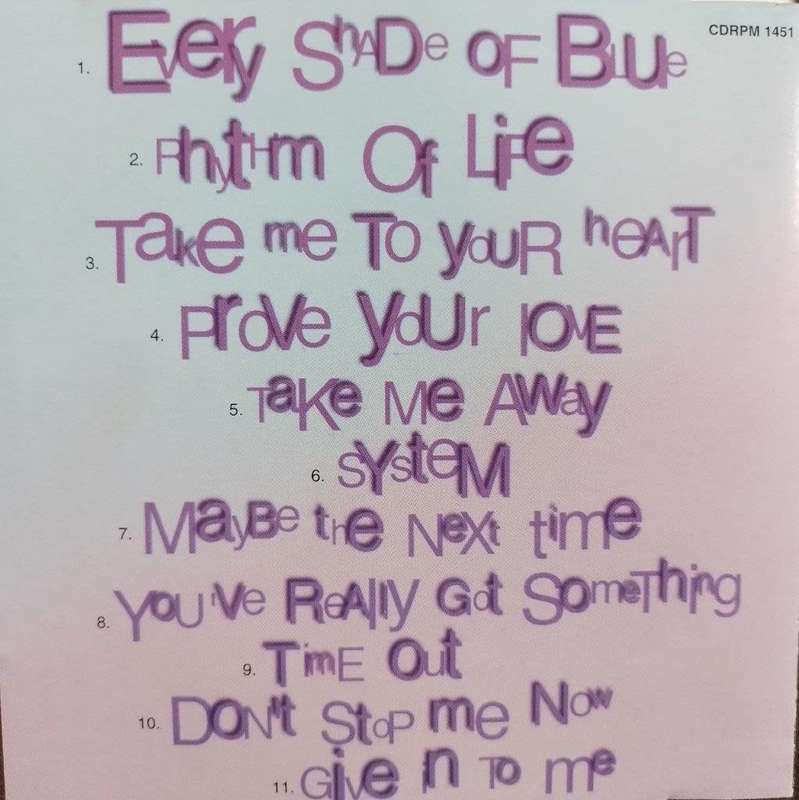 CDRPM 1451
1. EVery ShADe oF BLUe
2. RhytHm Of LiFe
3. Take me To youR heArT
4. ProVe yoUr lOVE
5. TaKe Me AWay
6. SYsteM
7. MayBe the NeXt time
8. YoU'Ve ReAlly Got SomeThing
9. TimE Out
10. DON't StoP me Now
11. Give in To me